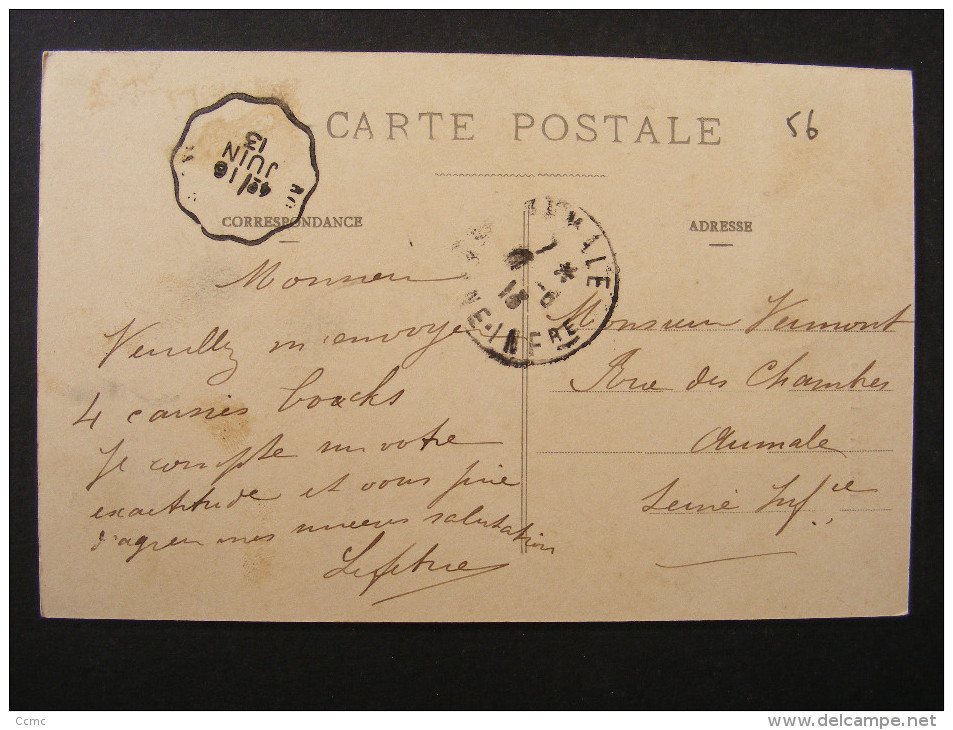 CARTE POSTALE
56
16
JUIN
13
CORRESPONDANCE
ADRESSE
AUMALE
NE-INFRE
Monsieur
Veuillez m'envoyer
4 caisses bocks
Je compte sur votre
exactitude et vous prie
d'agréer mes sincères salutation
Lefebvre
Monsieur Vermont
Rue des Chambres
Aumale
Seine Infre
Ccmc
www.delcampe.net